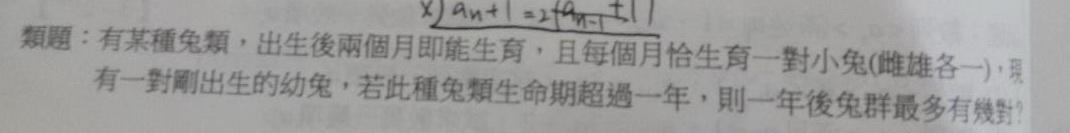 x) an+1=2(an-1+1)
類題：有某種兔類，出生後兩個月即能生育，且每個月恰生育一對小兔(雌雄各一)，現
有一對剛出生的幼兔，若此種兔類生命期超過一年，則一年後兔群最多有幾對?